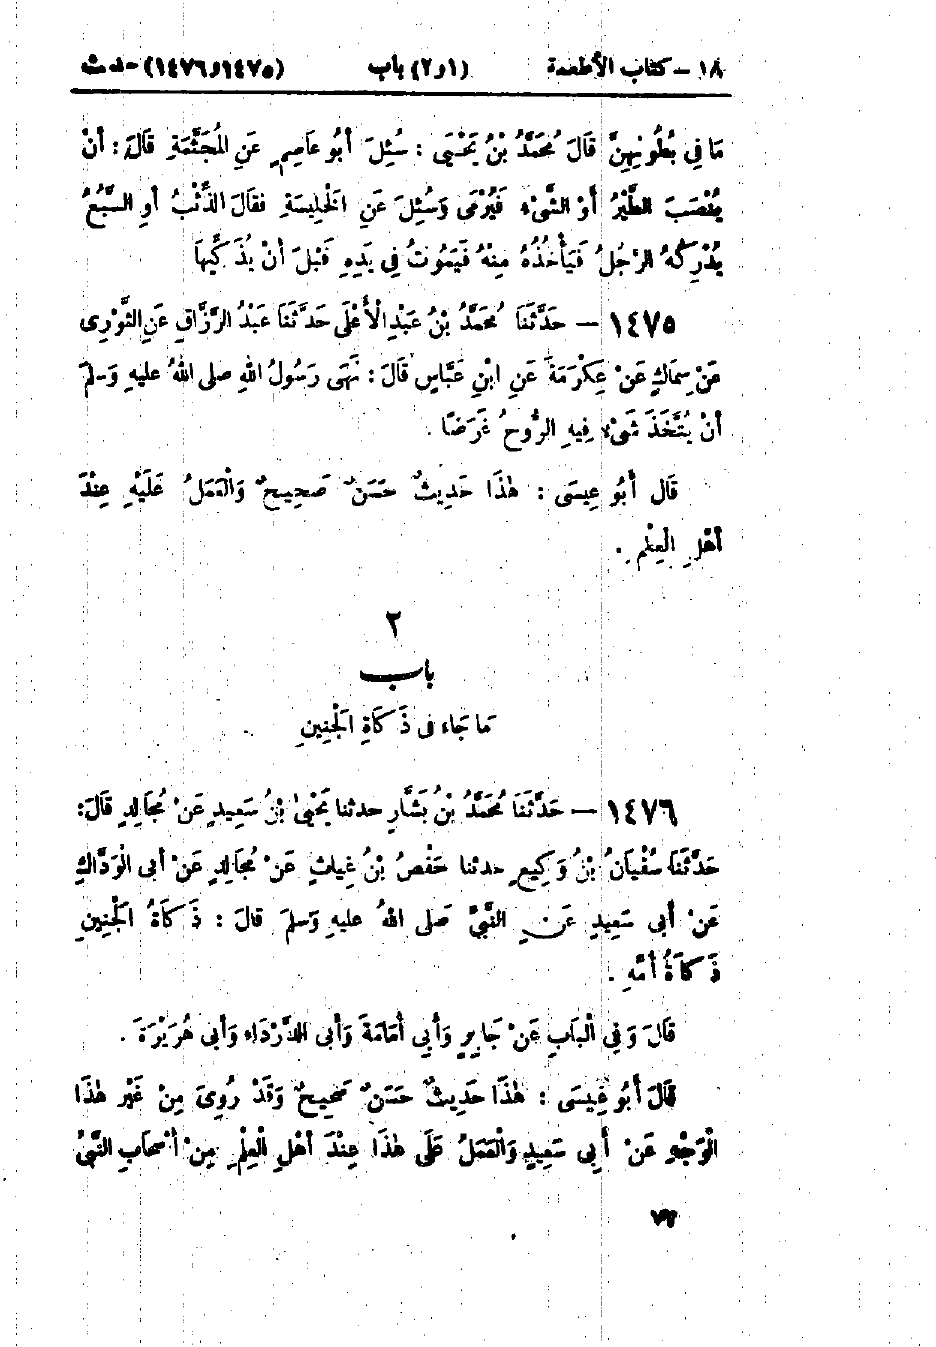 ١٨ – كتاب الأطعمة (١و٢) باب (١٤٧٥و١٤٧٦) حديث
مَا فِي بُطُونِهِنَّ قَالَ مُحَمَّدُ بْنُ يَحْيَى : سُئِلَ أَبُو عَاصِمٍ عَنِ الْمُجَثَّمَةِ قَالَ : أَنْ
يُنْصَبَ الطَّيْرُ أَوْ الشَّيْءُ فَيُرْمَى وَسُئِلَ عَنِ الْخَلِيسَةِ فقَالَ الذِّئْبُ أوِ السَّبُعُ
يُدْرِكُهُ الرَّجُلُ فَيَأْخُذُهُ مِنْهُ فَيَمُوتُ فِي يَدِهِ قَبْلَ أَنْ يُذَكِّيهَا
١٤٧٥ – حَدَّثَنَا مُحَمَّدُ بْنُ عَبْدِ الْأَعْلَى حَدَّثَنَا عَبْدُ الرَّزَّاقِ عَنِ الثَّوْرِى
عَنْ سِمَاكٍ عَنْ عِكْرَمَةَ عَنِ ابْنِ عَبَّاسٍ قَالَ : نَهَى رَسُولُ اللهِ صلى اللهُ عليهِ وَسلمَ
أنْ يُتَّخَذَ شَىْءٌ فِيهِ الرُّوحُ غَرَضًا .
قَال أَبُو عِيسَى : هٰذَا حَدِيثٌ حَسَنٌ صَحِيحٌ وَالْعَمَلُ عَلَيْهِ عِنْدَ
أَهْلِ الْعِلْمِ .
٢
باب
مَا جَاء فى ذَكَاةِ الْجَنِينِ
١٤٧٦ – حَدَّثَنَا مُحَمَّدُ بْنُ بَشَّارٍ حدثنا يَحْيىٰ بْنُ سَعِيدٍ عَنْ مُجَالِدٍ قَالَ:
حَدَّثَنَا سُفْيَانُ بْنُ وَكِيعٍ حدثنا حَفْصُ بْنُ غِيَاثٍ عَنْ مُجَالِدٍ عَنْ أَبى الْوَدَّاكِ
عَنْ أَبى سَعِيدٍ عَنِ النَّبِيِّ صَلى اللهُ عليهِ وَسلمَ قالَ : ذَكَاةُ الْجَنِينِ
ذَكَاةُ أُمِّهِ .
قَالَ وَفِي الْبَابِ عَنْ جَابِرٍ وَأَبِي أُمَامَةَ وَأَبى الدَّرْدَاءِ وَأَبى هُرَيْرَةَ .
قَالَ أَبُو عِيسَى : هٰذَا حَدِيثٌ حَسَنٌ صَحِيحٌ وَقَدْ رُوِىَ مِنْ غَيْرِ هٰذَا
الْوَجْهِ عَنْ أَبِي سَعِيدٍ وَالْعَمَلُ عَلَى هٰذَا عِنْدَ أَهْلِ الْعِلْمِ مِنْ أَصْحَابِ النَّبِيِّ
٧٢